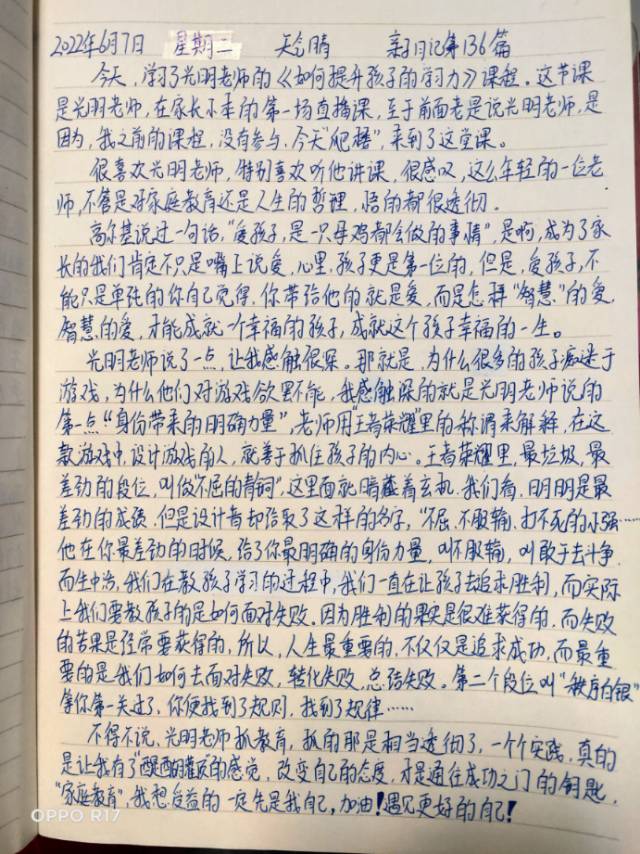 2022年6月7日 星期二 天气晴 亲子日记第136篇
今天,学习了光明老师的《如何提升孩子的学习力》课程。这节课
是光明老师,在家长小季的第一场直播课,至于前面老是说光明老师,是
因为,我之前的课程,没有参与,今天"爬楼",来到了这堂课。
很喜欢光明老师,特别喜欢听他讲课,很感叹,这么年轻的一位老
师,不管是对家庭教育还是人生的哲理,悟的都很透彻.
高尔基说过一句话,"爱孩子,是一只母鸡都会做的事情",是啊,成为了家
长的我们肯定不只是嘴上说爱,心里,孩子更是第一位的,但是,爱孩子,不
能只是单纯的你自己觉得,你带给他的就是爱,而是怎样"智慧"的爱,
智慧的爱,才能成就一个幸福的孩子,成就这个孩子幸福的一生。
光明老师说了一点,让我感触很深。那就是,为什么很多的孩子痴迷于
游戏,为什么他们对游戏欲罢不能,我感触深的就是光明老师说的
第一点"身份带来的明确力量",老师用"王者荣耀"里的称谓来解释,在这
款游戏中,设计游戏的人,就善于抓住孩子的内心。王者荣耀里,最垃圾,最
差劲的段位,叫做"不屈的青铜",这里面就暗藏着玄机,我们看,明明是最
差劲的成绩,但是设计者却给取了这样的名字,"不屈,不服输,打不死的小强……
他在你最差劲的时候,给了你最明确的身份力量,叫不服输,叫敢于去斗争,
而生中流,我们在教孩子学习的过程中,我们一直在让孩子去追求胜利,而实际
上我们要教孩子的是如何面对失败。因为胜利的果实是很难获得的,而失败
的苦果是经常要获得的,所以,人生最重要的,不仅仅是追求成功,而最重
要的是我们如何去面对失败,转化失败,总结失败。第二个段位叫"秩序白银"
等你第一关过了,你便找到了规则,找到了规律……
不得不说,光明老师抓教育,抓的那是相当透彻了,一个个实践,真的
是让我有了"醍醐灌顶的感觉,改变自己的态度,才是通往成功之门的钥匙,
"家庭教育",我想受益的一定先是我自己,加油!遇见更好的自己!
OPPO R17